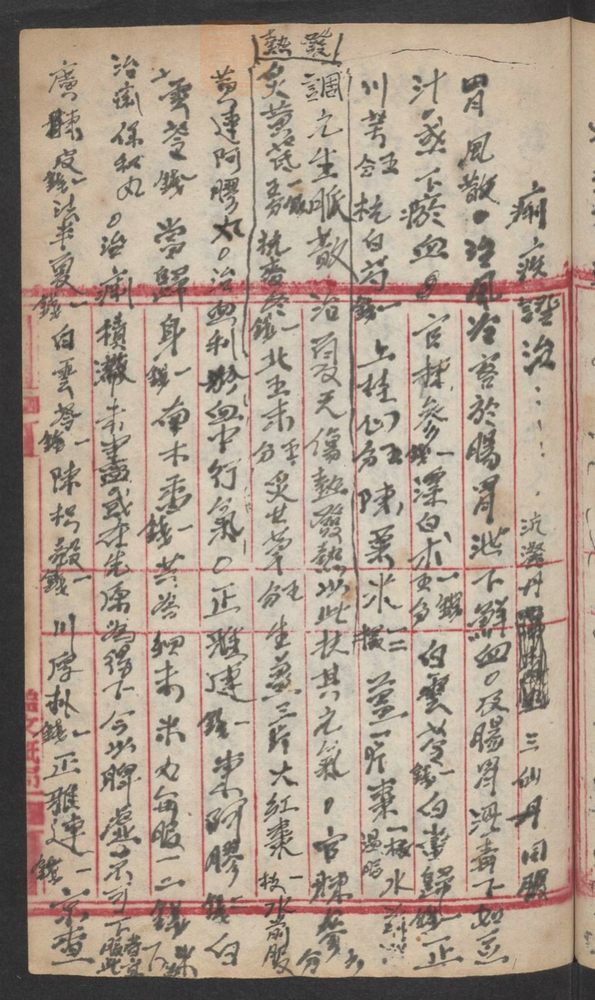 痢疾證治 流㵼丹 三仙丹同服
胃風散。治風冷客於腸胃泄下鮮血。及腸胃濕毒下如豆
汁。或下瘀血。官揀參錢一 漂白朮 白雲苓錢一 白當歸錢一 正
川芎五分 杭白芍錢一 上桂心五分 陳粟米一撮 薑一片 棗一枚 水
發熱
調元生脈散 治夏天傷熱發熱以此扶其元氣。官揀參六分
炙黃芪 杭麥冬錢一 北五味五分 炙甘草五分 生薑三片 大紅棗一枚 水煎服
黃連阿膠丸。治血利 血中行氣。正雅連錢 東阿膠錢 白
雲苓錢 當歸身錢一 南木香錢一 共為細末米丸每服一二錢米
治痢保和丸。治痢積滯未盡或亦先原為得下今以脾虛不可下者宜服此
廣陳皮錢一 法半夏錢一 白雲苓錢一 陳枳殼錢一 川厚朴錢一 正雅連錢一 京查